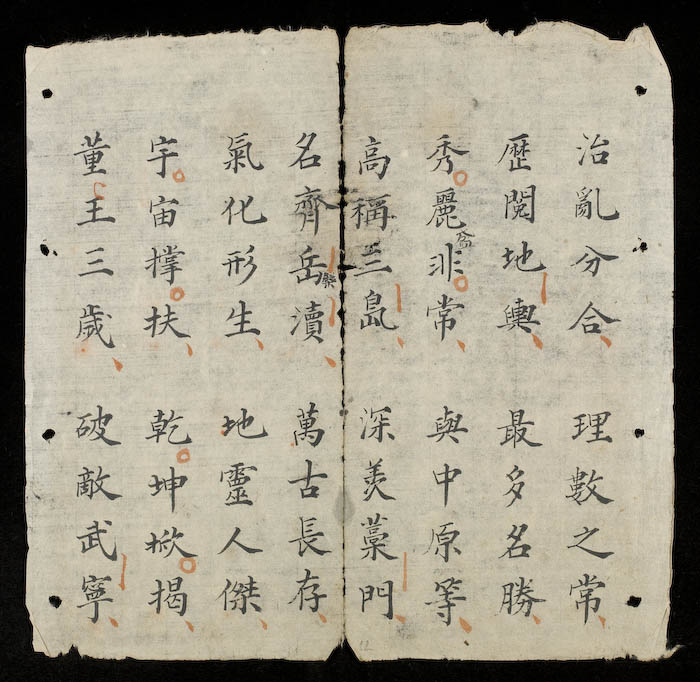 治亂分合 理數之常
歷閱地輿 最多名勝
秀麗非常 與中原等
高稱三島 深羨藁門
名齊岳瀆 萬古長存
氣化形生 地靈人傑
宇宙撑扶 乾坤掀揭
董王三歲 破敵武寧